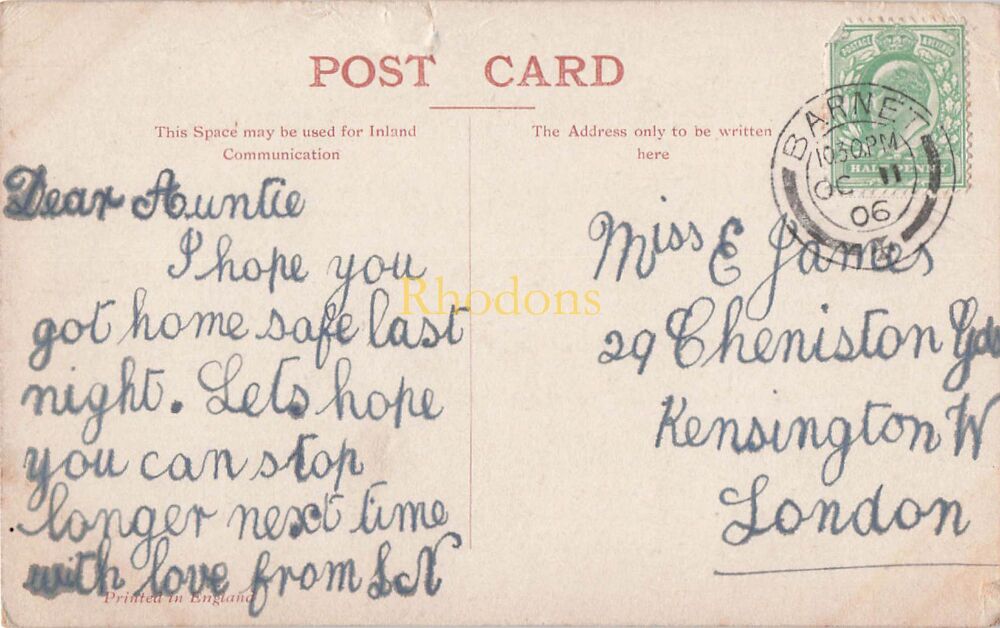 POST CARD
This Space may be used for Inland
Communication
The Address only to be written
here
POSTAGE & REVENUE
HALF PENNY
BARNET
10 30 PM
OC 11
06
Dear Auntie
I hope you
got home safe last
night. Lets hope
you can stop
longer next time
with love from L N
Miss E James
29 Cheniston Gds
Kensington W
London
Printed in England
Rhodons